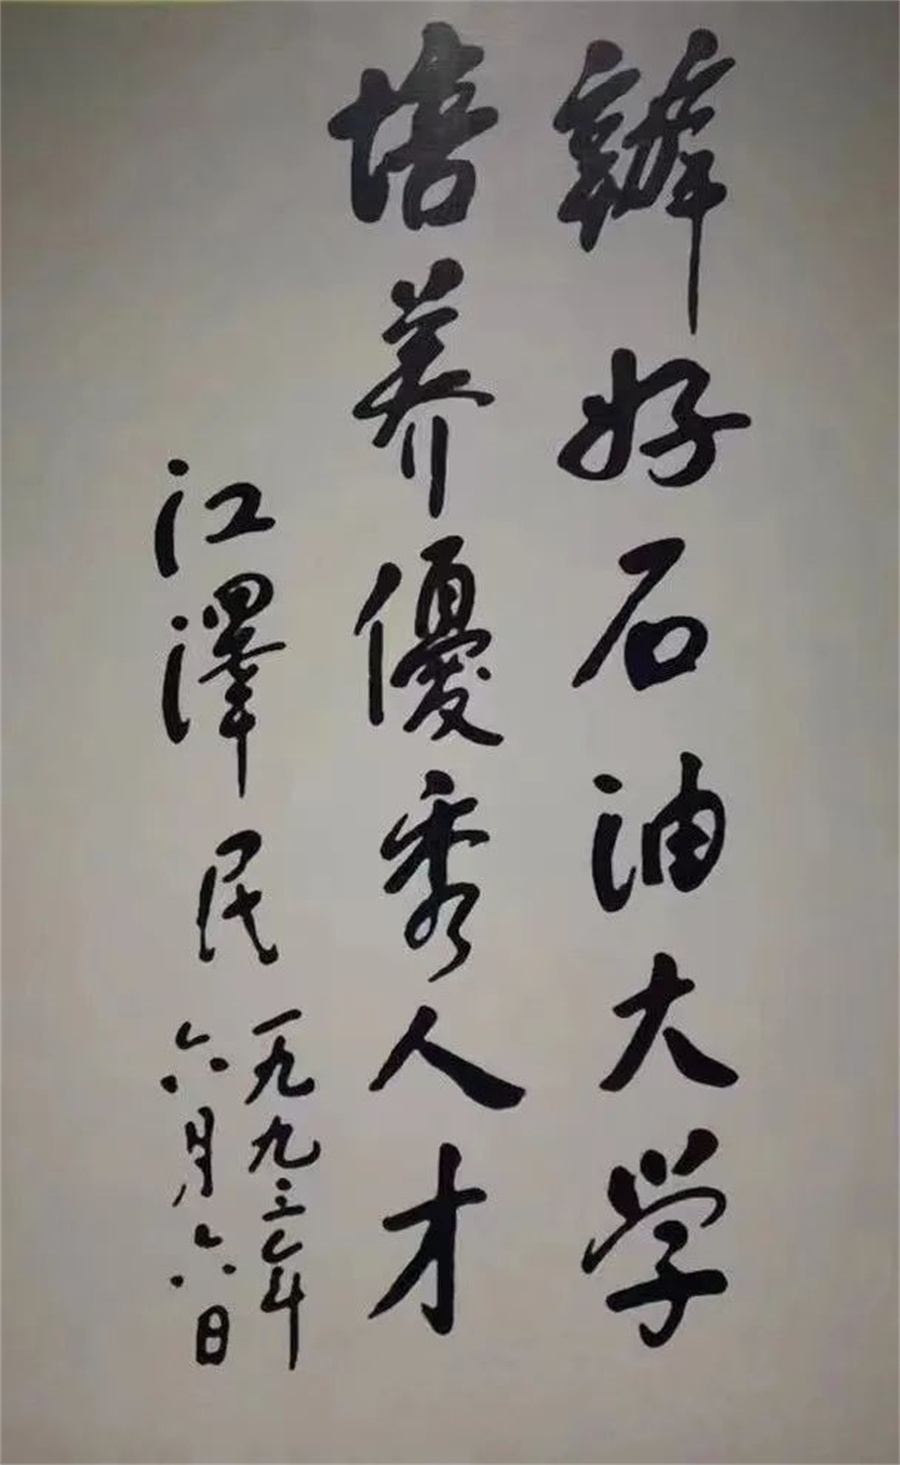 辦好石油大学
培养優秀人才
江澤民
一九九三年
六月六日